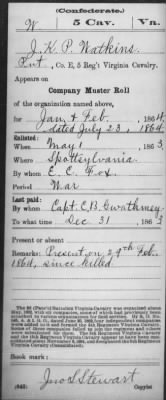 (Confederate.)
W 5 Cav. Va.
J. K. P. Watkins
Pvt, Co. E, 5 Reg't Virginia Cavalry.
Appears on
Company Muster Roll
of the organization named above,
for Jan & Feb, 1864.
dated July 23, 1864
Enlisted:
When May 1, 1863.
Where Spottsylvania
By whom E. C. Fox
Period War
Last paid:
By whom Capt. C. B. Gwathmey
To what time Dec 31, 1863
Present or absent
Remarks: Present on 29th Feb.
1864, since killed
Book mark:
Jno S Stewart
(642) Copyist